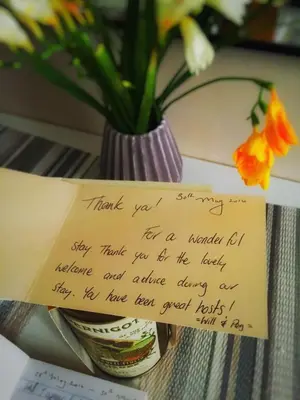 Thank you!
30th May 2016
For a wonderful
stay. Thank you for the lovely
welcome and advice during our
stay. You have been great hosts!
=Will & Peg=
ERNIGOT